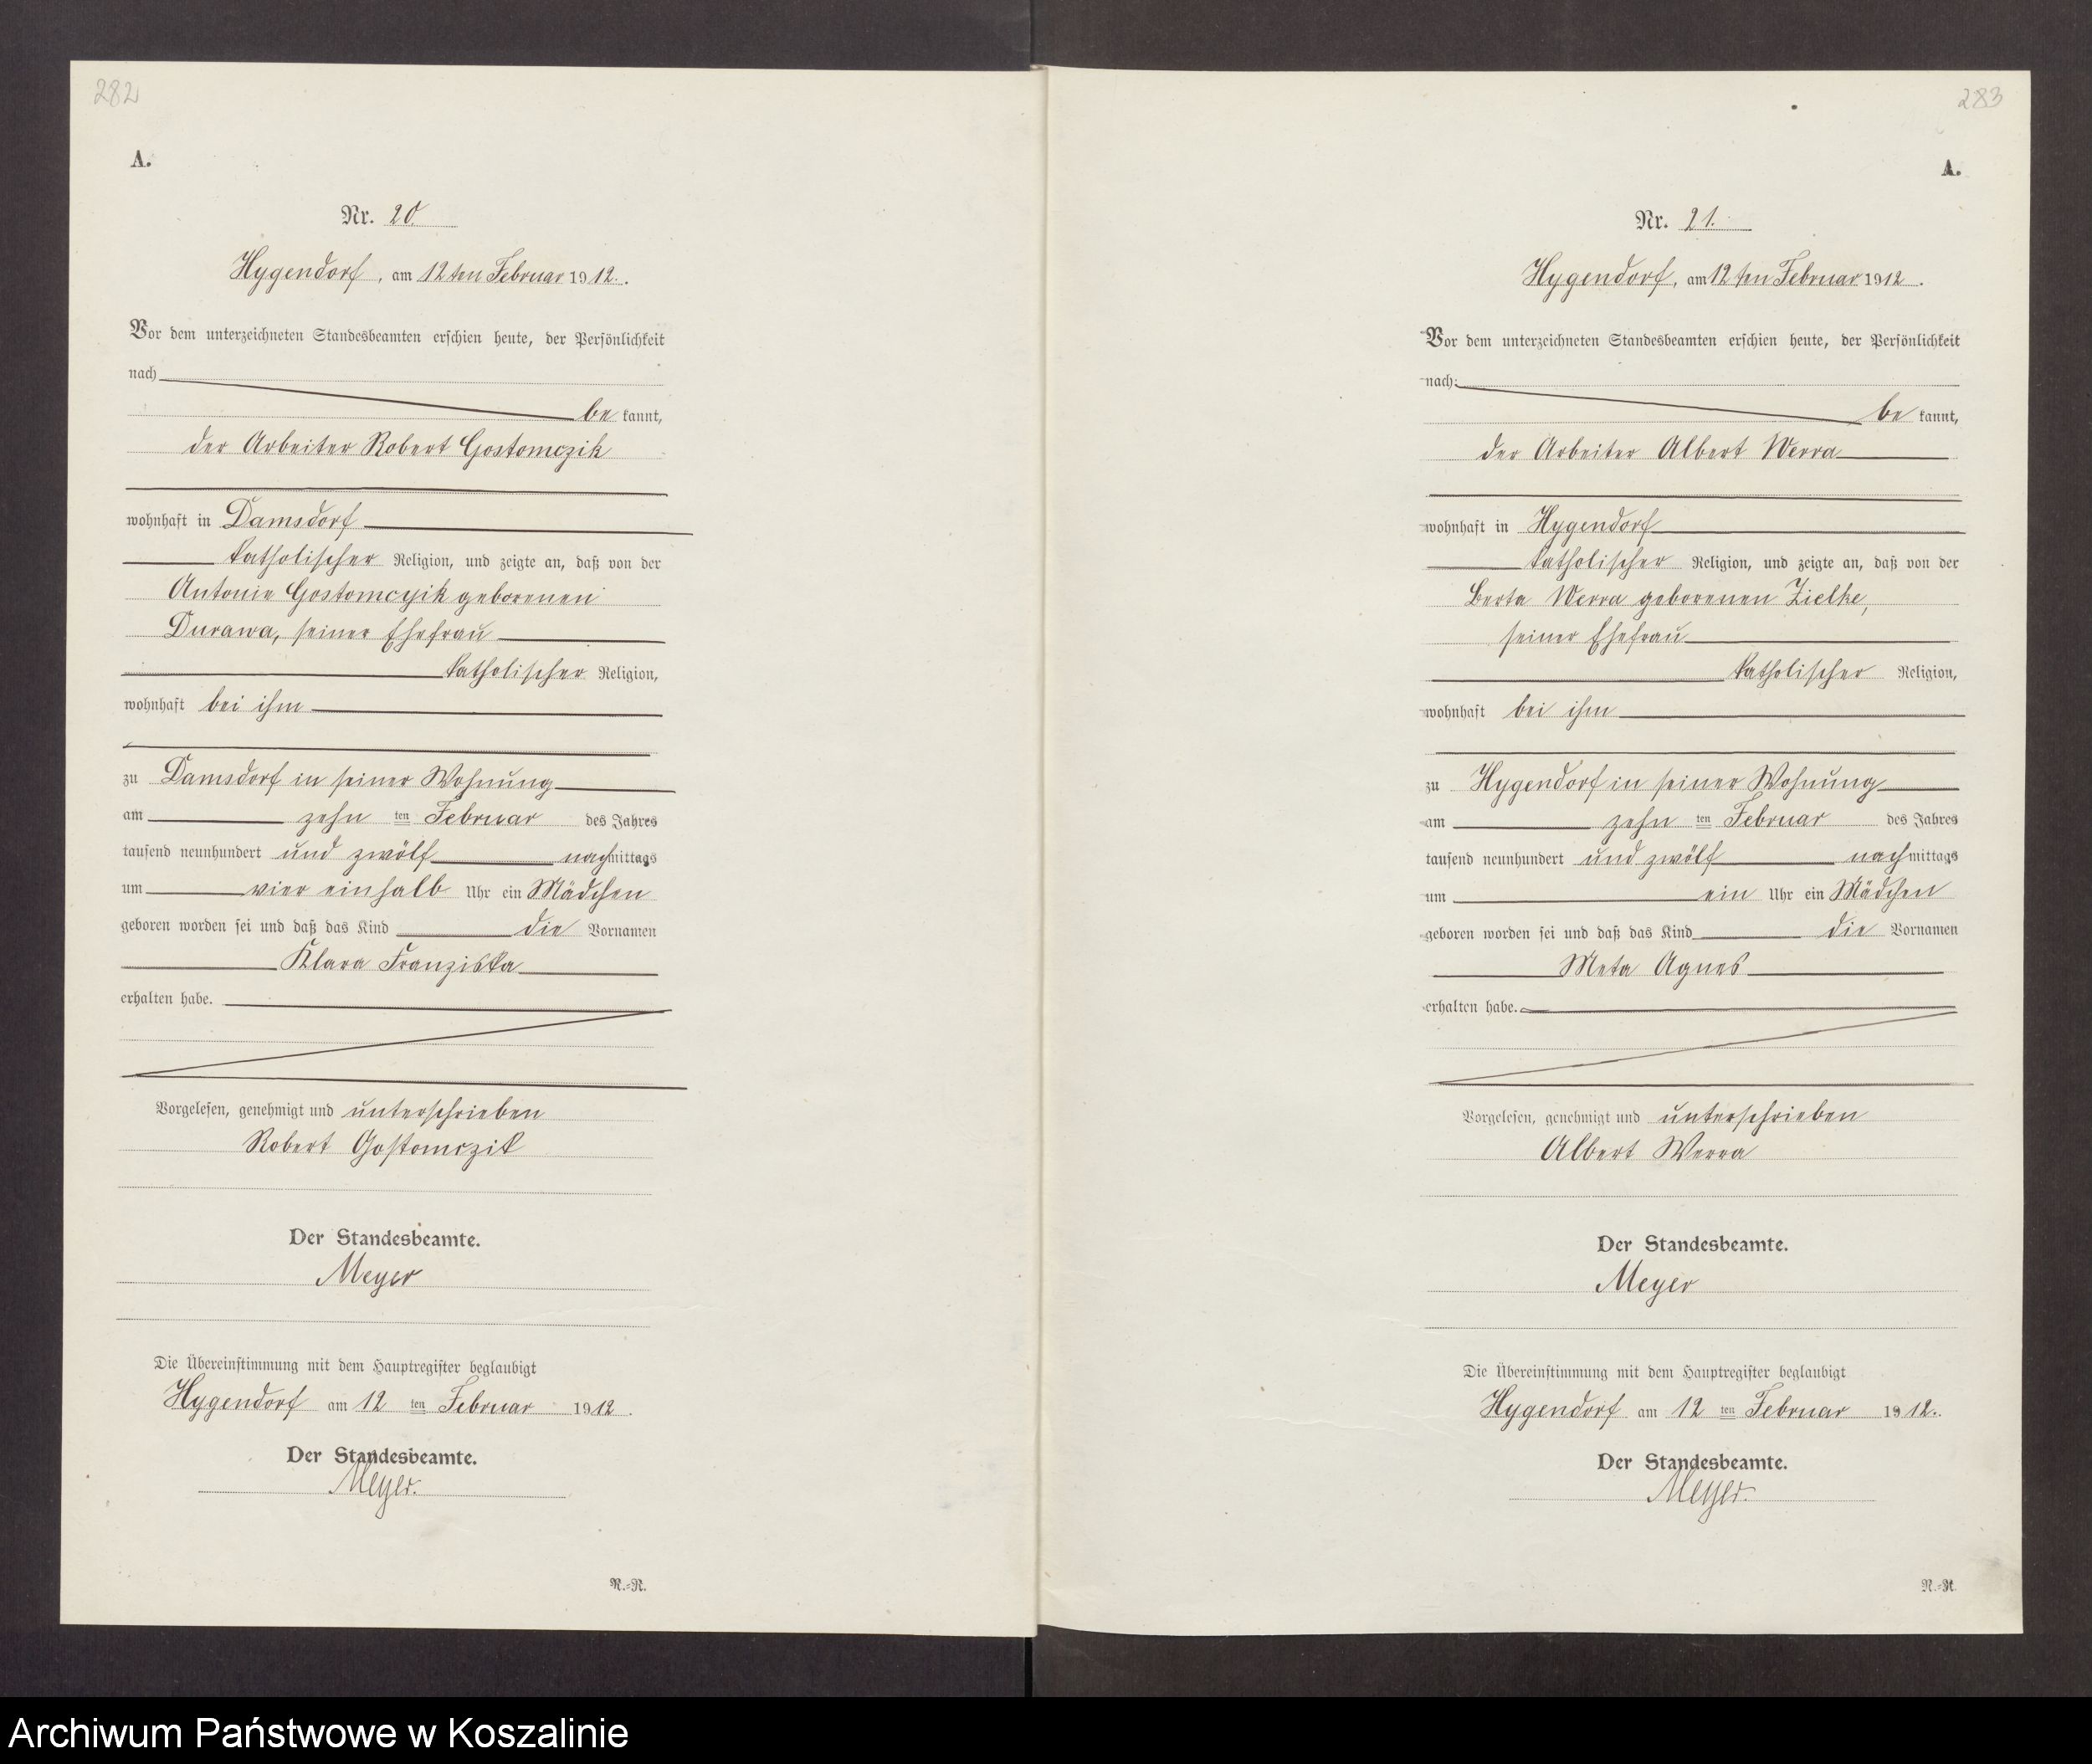 282
A.
Nr. 20.
Hygendorf, am 12ten Februar 1912.
Vor dem unterzeichneten Standesbeamten erschien heute, der Persönlichkeit
nach
be kannt,
der Arbeiter Robert Gostomczik
wohnhaft in Damsdorf
katholischer Religion, und zeigte an, daß von der
Antonie Gostomczik geborenen
Durawa, seiner Ehefrau
katholischer Religion,
wohnhaft bei ihm
zu Damsdorf in seiner Wohnung
am zehn ten Februar des Jahres
tausend neunhundert und zwölf nachmittags
um vier einhalb Uhr ein Mädchen
geboren worden sei und daß das Kind die Vornamen
Klara Franziska
erhalten habe.
Vorgelesen, genehmigt und unterschrieben
Robert Gostomczik
Der Standesbeamte.
Meyer
Die Übereinstimmung mit dem Hauptregister beglaubigt
Hygendorf am 12 ten Februar 1912.
Der Standesbeamte.
Meyer.
R.-R.
283
A.
Nr. 21.
Hygendorf, am 12ten Februar 1912.
Vor dem unterzeichneten Standesbeamten erschien heute, der Persönlichkeit
nach
be kannt,
der Arbeiter Albert Werra
wohnhaft in Hygendorf
katholischer Religion, und zeigte an, daß von der
Berta Werra geborenen Zielke,
seiner Ehefrau
katholischer Religion,
wohnhaft bei ihm
zu Hygendorf in seiner Wohnung
am zehn ten Februar des Jahres
tausend neunhundert und zwölf nachmittags
um ein Uhr ein Mädchen
geboren worden sei und daß das Kind die Vornamen
Meta Agnes
erhalten habe.
Vorgelesen, genehmigt und unterschrieben
Albert Werra
Der Standesbeamte.
Meyer
Die Übereinstimmung mit dem Hauptregister beglaubigt
Hygendorf am 12 ten Februar 1912.
Der Standesbeamte.
Meyer.
R.-R.
Archiwum Państwowe w Koszalinie